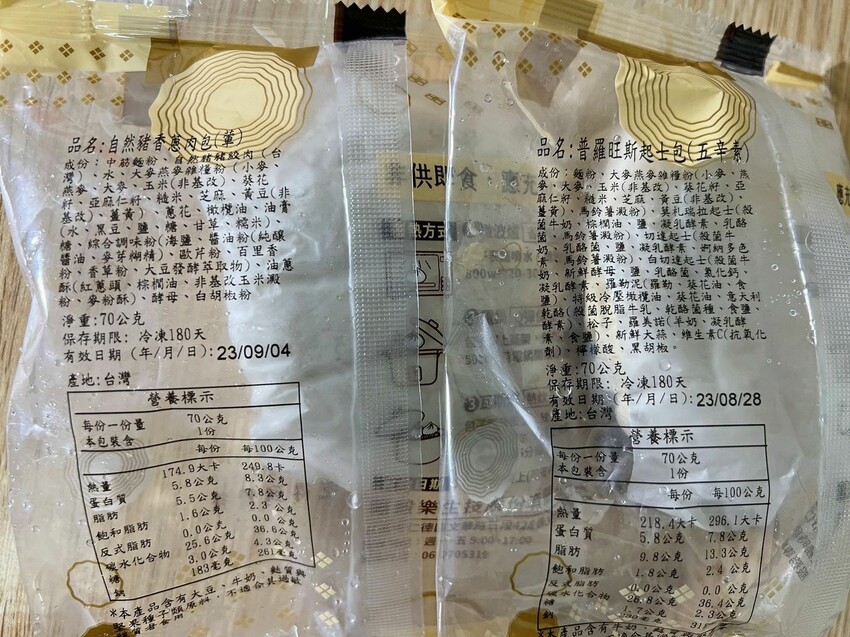 品名:自然豬香蔥肉包(葷)
成份:中筋麵粉、自然豬豬絞肉(台
灣)、水、大麥燕麥雜糧粉(小麥、
燕麥、大麥、玉米(非基改)、葵花
籽、亞麻仁籽、糙米、芝麻、黃豆(非
基改)、薑黃)、蔥花、橄欖油、油膏
(水、黑豆、鹽、甘草、糯米)、
糖、綜合調味粉(海鹽、醬油粉(純釀
醬油、麥芽糊精)、歐芹粉、百里香
粉、香草粉、大豆發酵萃取物)、油蔥
酥(紅蔥頭、棕櫚油、非基改玉米澱
粉、麥粉酥)、酵母、白胡椒粉
淨重:70公克
保存期限: 冷凍180天
有效日期 (年/月/日): 23/09/04
產地:台灣
營養標示
每份一份量 70公克
本包裝含 1份
每份 每100公克
熱量 174.9大卡 249.8卡
蛋白質 5.8公克 8.3公克
脂肪 5.5公克 7.8公克
飽和脂肪 1.6公克 2.3 公克
反式脂肪 0.0公克 0.0 公克
碳水化合物 25.6公克 36.6公克
糖 3.0公克 4.3公克
鈉 183毫克
*本產品含有大豆、牛奶、麩質與
堅果種子類原料，不適合其過敏
體質者食用
供即食
熱方式
週一~五 9:00-17:00
品名:普羅旺斯起士包(五辛素)
成份:麵粉、大麥燕麥雜糧粉(小麥、燕
麥、大麥、玉米(非基改)、葵花籽、亞
麻仁籽、糙米、芝麻、黃豆(非基改)、
薑黃)、馬鈴薯澱粉)、莫札瑞拉起士(殺
菌牛奶、棕櫚油、鹽、凝乳酵素、乳酪
菌、馬鈴薯澱粉)、切達起士(殺菌牛
奶、乳酪菌、鹽、凝乳酵素、婀納多色
素、馬鈴薯澱粉)、白切達起士(殺菌牛
奶、新鮮酵母、鹽、乳酪菌、氯化鈣、
凝乳酵素、羅勒泥(羅勒、葵花油、食
鹽)、特級冷壓橄欖油、葵花油、意大利
乾酪(殺菌脫脂牛乳、乾酪菌種、食鹽、
酵素)、松子、羅美諾(羊奶、凝乳酵
素、食鹽)、新鮮大蒜、維生素C(抗氧化
劑)、檸檬酸、黑胡椒。
淨重:70公克
保存期限: 冷凍180天
有效日期 (年/月/日): 23/08/28
產地:台灣
營養標示
每份一份量 70公克
本包裝含 1份
每份 每100公克
熱量 218.4大卡 296.1大卡
蛋白質 5.8公克 7.8公克
脂肪 9.8公克 13.3公克
飽和脂肪 1.8公克 2.4 公克
反式脂肪 0.0公克 0.0 公克
碳水化合物 26.8公克 36.4公克
糖 1.7公克 2.3公克
鈉
*本產品含有牛奶